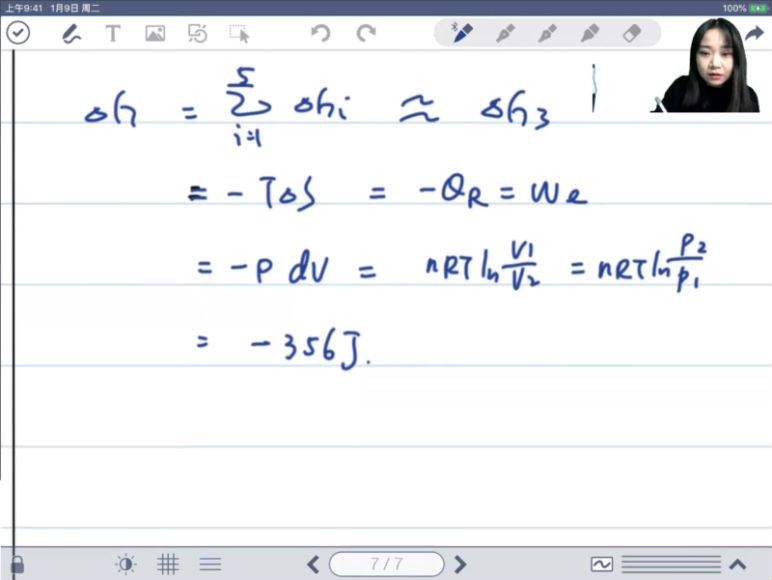 上午9:41 1月9日 周二 100%
T
ΔG = \sum_{i=1}^{5} ΔGi ≈ ΔG3
= - TΔS = - QR = We
= - P dV = nRT ln \frac{V1}{V2} = nRT ln \frac{P2}{P1}
= - 356J.
7 / 7